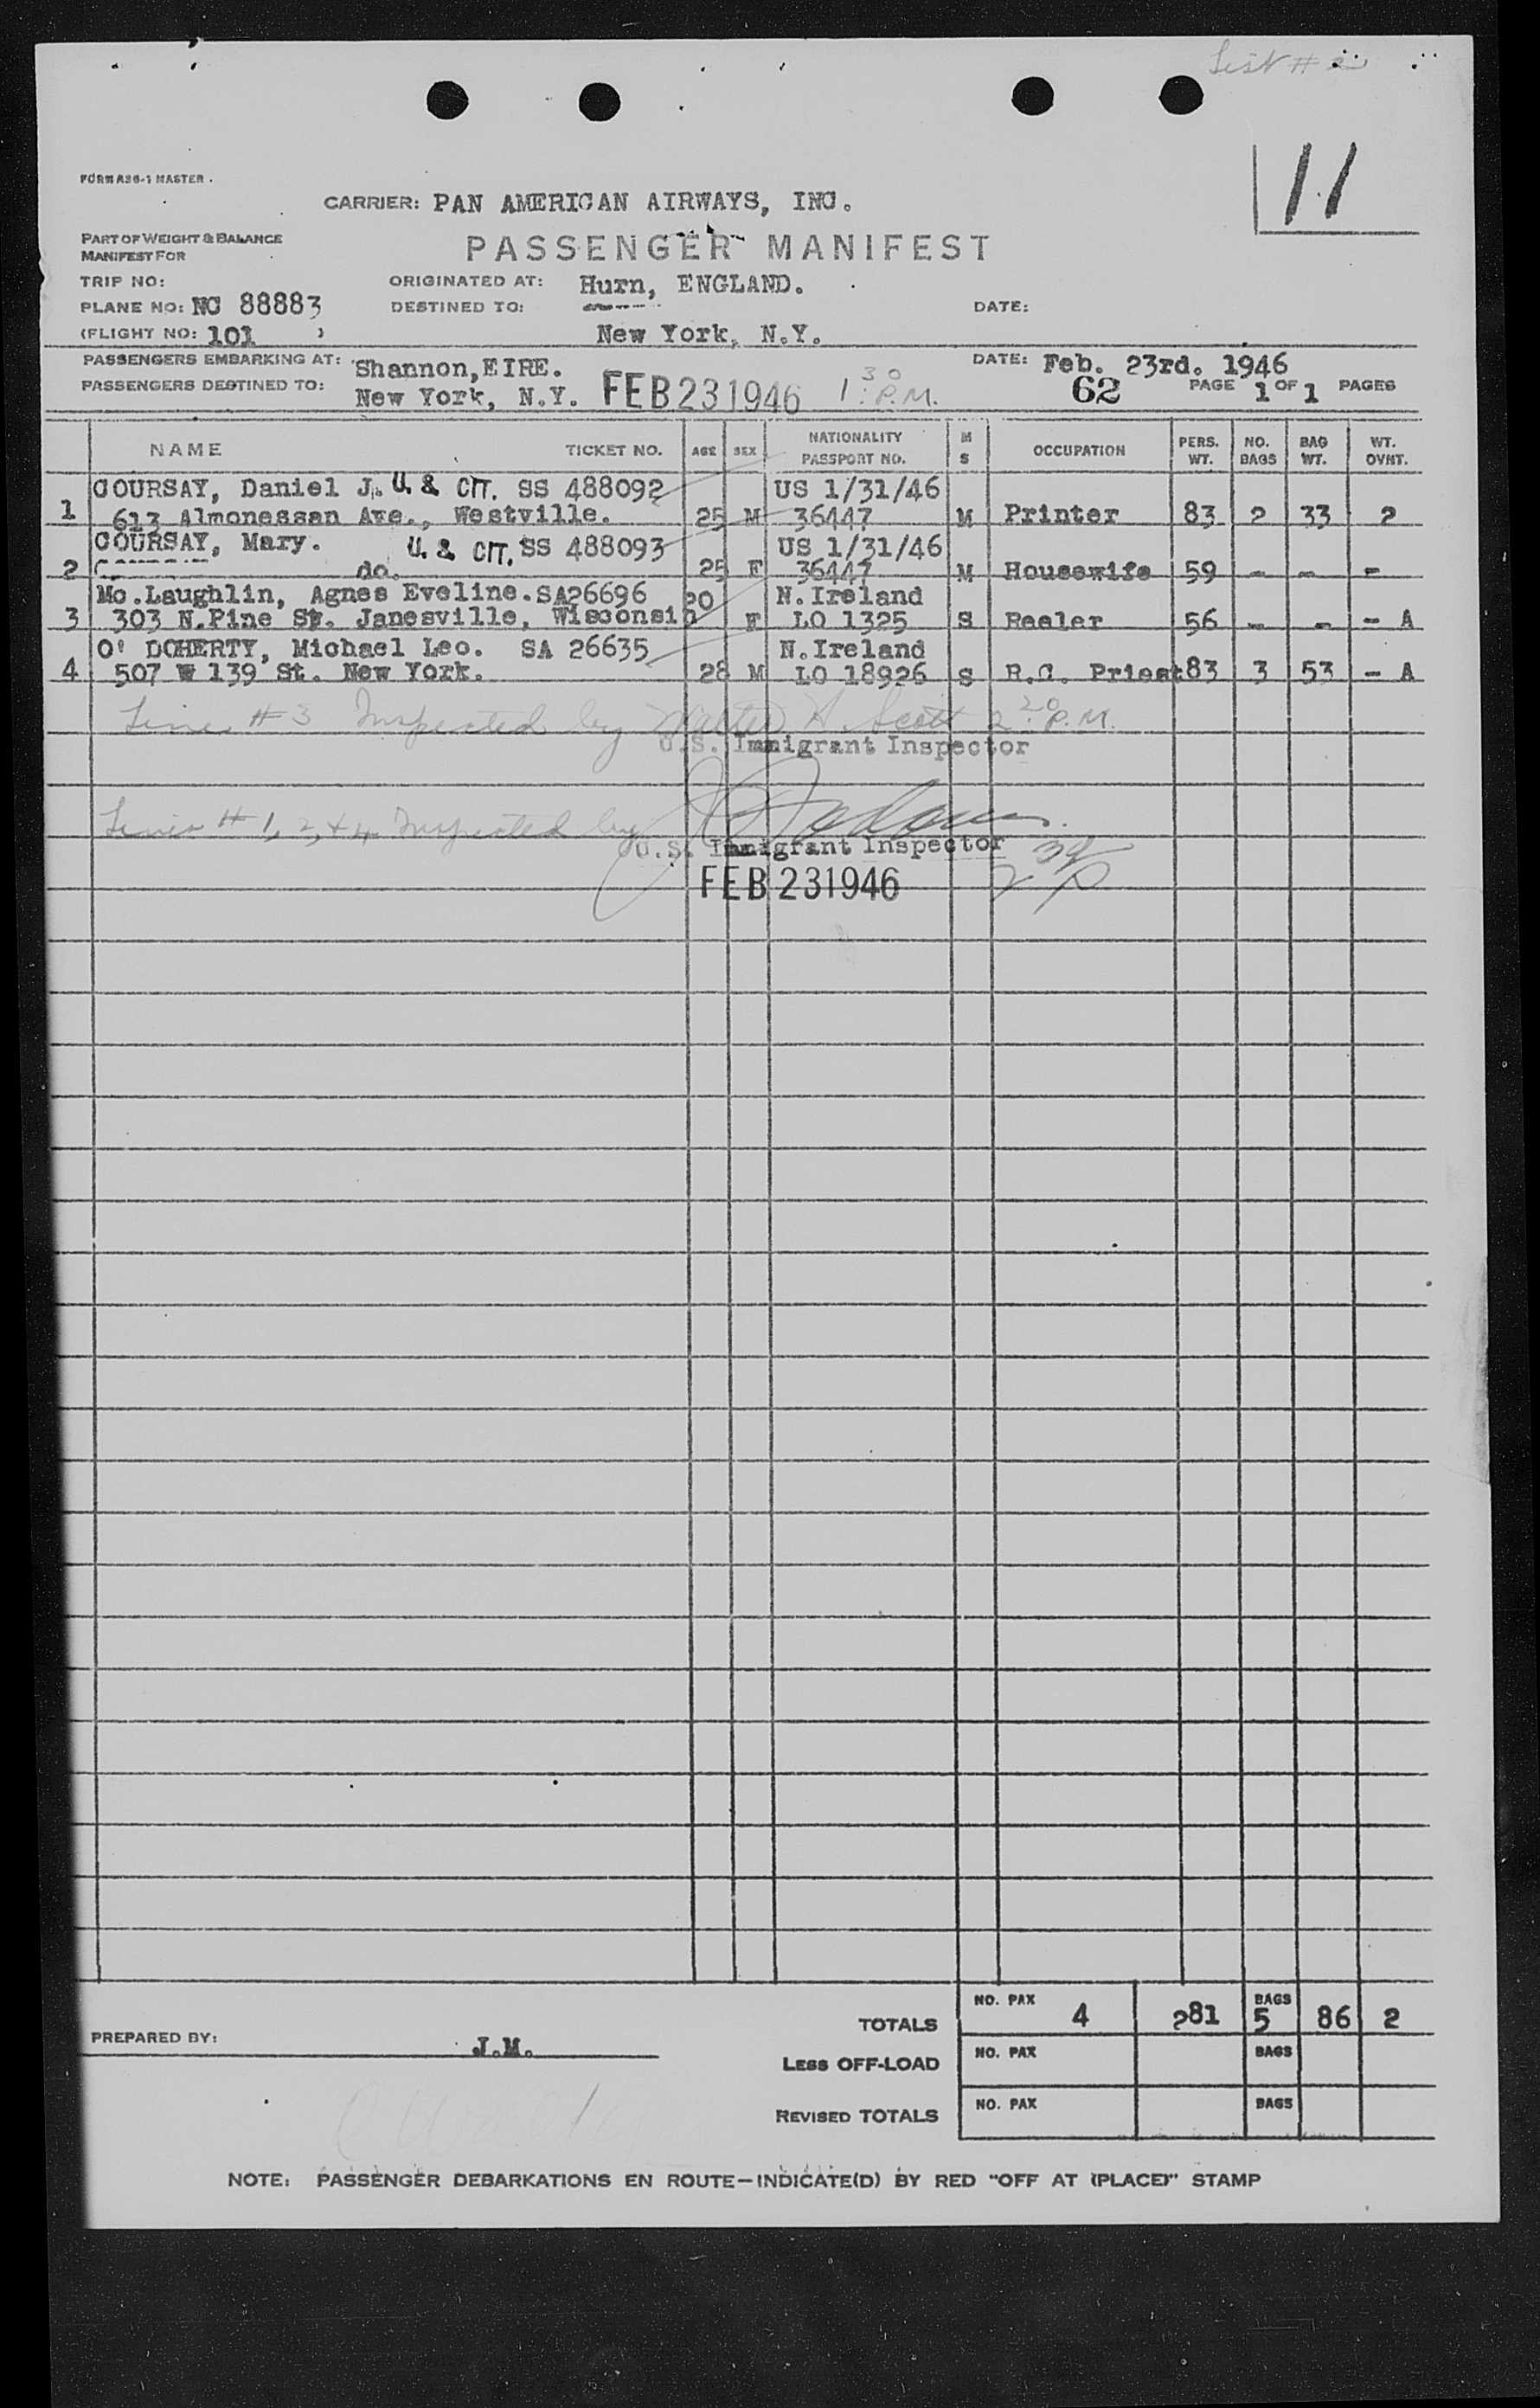 List # 2
11
FORM A36-1 MASTER.
CARRIER: PAN AMERICAN AIRWAYS, INC.
PART OF WEIGHT & BALANCE
MANIFEST FOR
PASSENGER MANIFEST
TRIP NO:
ORIGINATED AT: Hurn, ENGLAND.
PLANE NO: NC 88883
DESTINED TO:
DATE:
(FLIGHT NO: 101 )
New York, N.Y.
PASSENGERS EMBARKING AT: Shannon, EIRE.
DATE: Feb. 23rd. 1946
PASSENGERS DESTINED TO: New York, N.Y. FEB 23 1946 1:30 P.M. 62 PAGE 1 OF 1 PAGES
NAME TICKET NO. AGE SEX NATIONALITY PASSPORT NO. M S OCCUPATION PERS. WT. NO. BAGS BAG WT. WT. OVHT.
COURSAY, Daniel J. U. S. CIT. SS 488092 US 1/31/46
1 613 Almonessan Ave., Westville. 25 M 36447 M Printer 83 2 33 2
COURSAY, Mary. U. S. CIT. SS 488093 US 1/31/46
2 do. 25 F 36447 M Housewife 59 - - -
Mc.Laughlin, Agnes Eveline. SA26696 20 N.Ireland
3 303 N.Pine St. Janesville, Wisconsin F LO 1325 S Reeler 56 - - - A
O' DOHERTY, Michael Leo. SA 26635 N.Ireland
4 507 W 139 St. New York. 28 M LO 18926 S R.C. Priest 83 3 53 - A
Line # 3 Inspected by Walter H. Scott 2:20 P.M.
U.S. Immigrant Inspector
Lines # 1, 2, & 4 Inspected by
U.S. Immigrant Inspector
FEB 23 1946 2:30 P
TOTALS NO. PAX 4 281 BAGS 5 86 2
PREPARED BY: J.M.
LESS OFF-LOAD NO. PAX BAGS
REVISED TOTALS NO. PAX BAGS
NOTE: PASSENGER DEBARKATIONS EN ROUTE—INDICATE(D) BY RED "OFF AT (PLACE)" STAMP